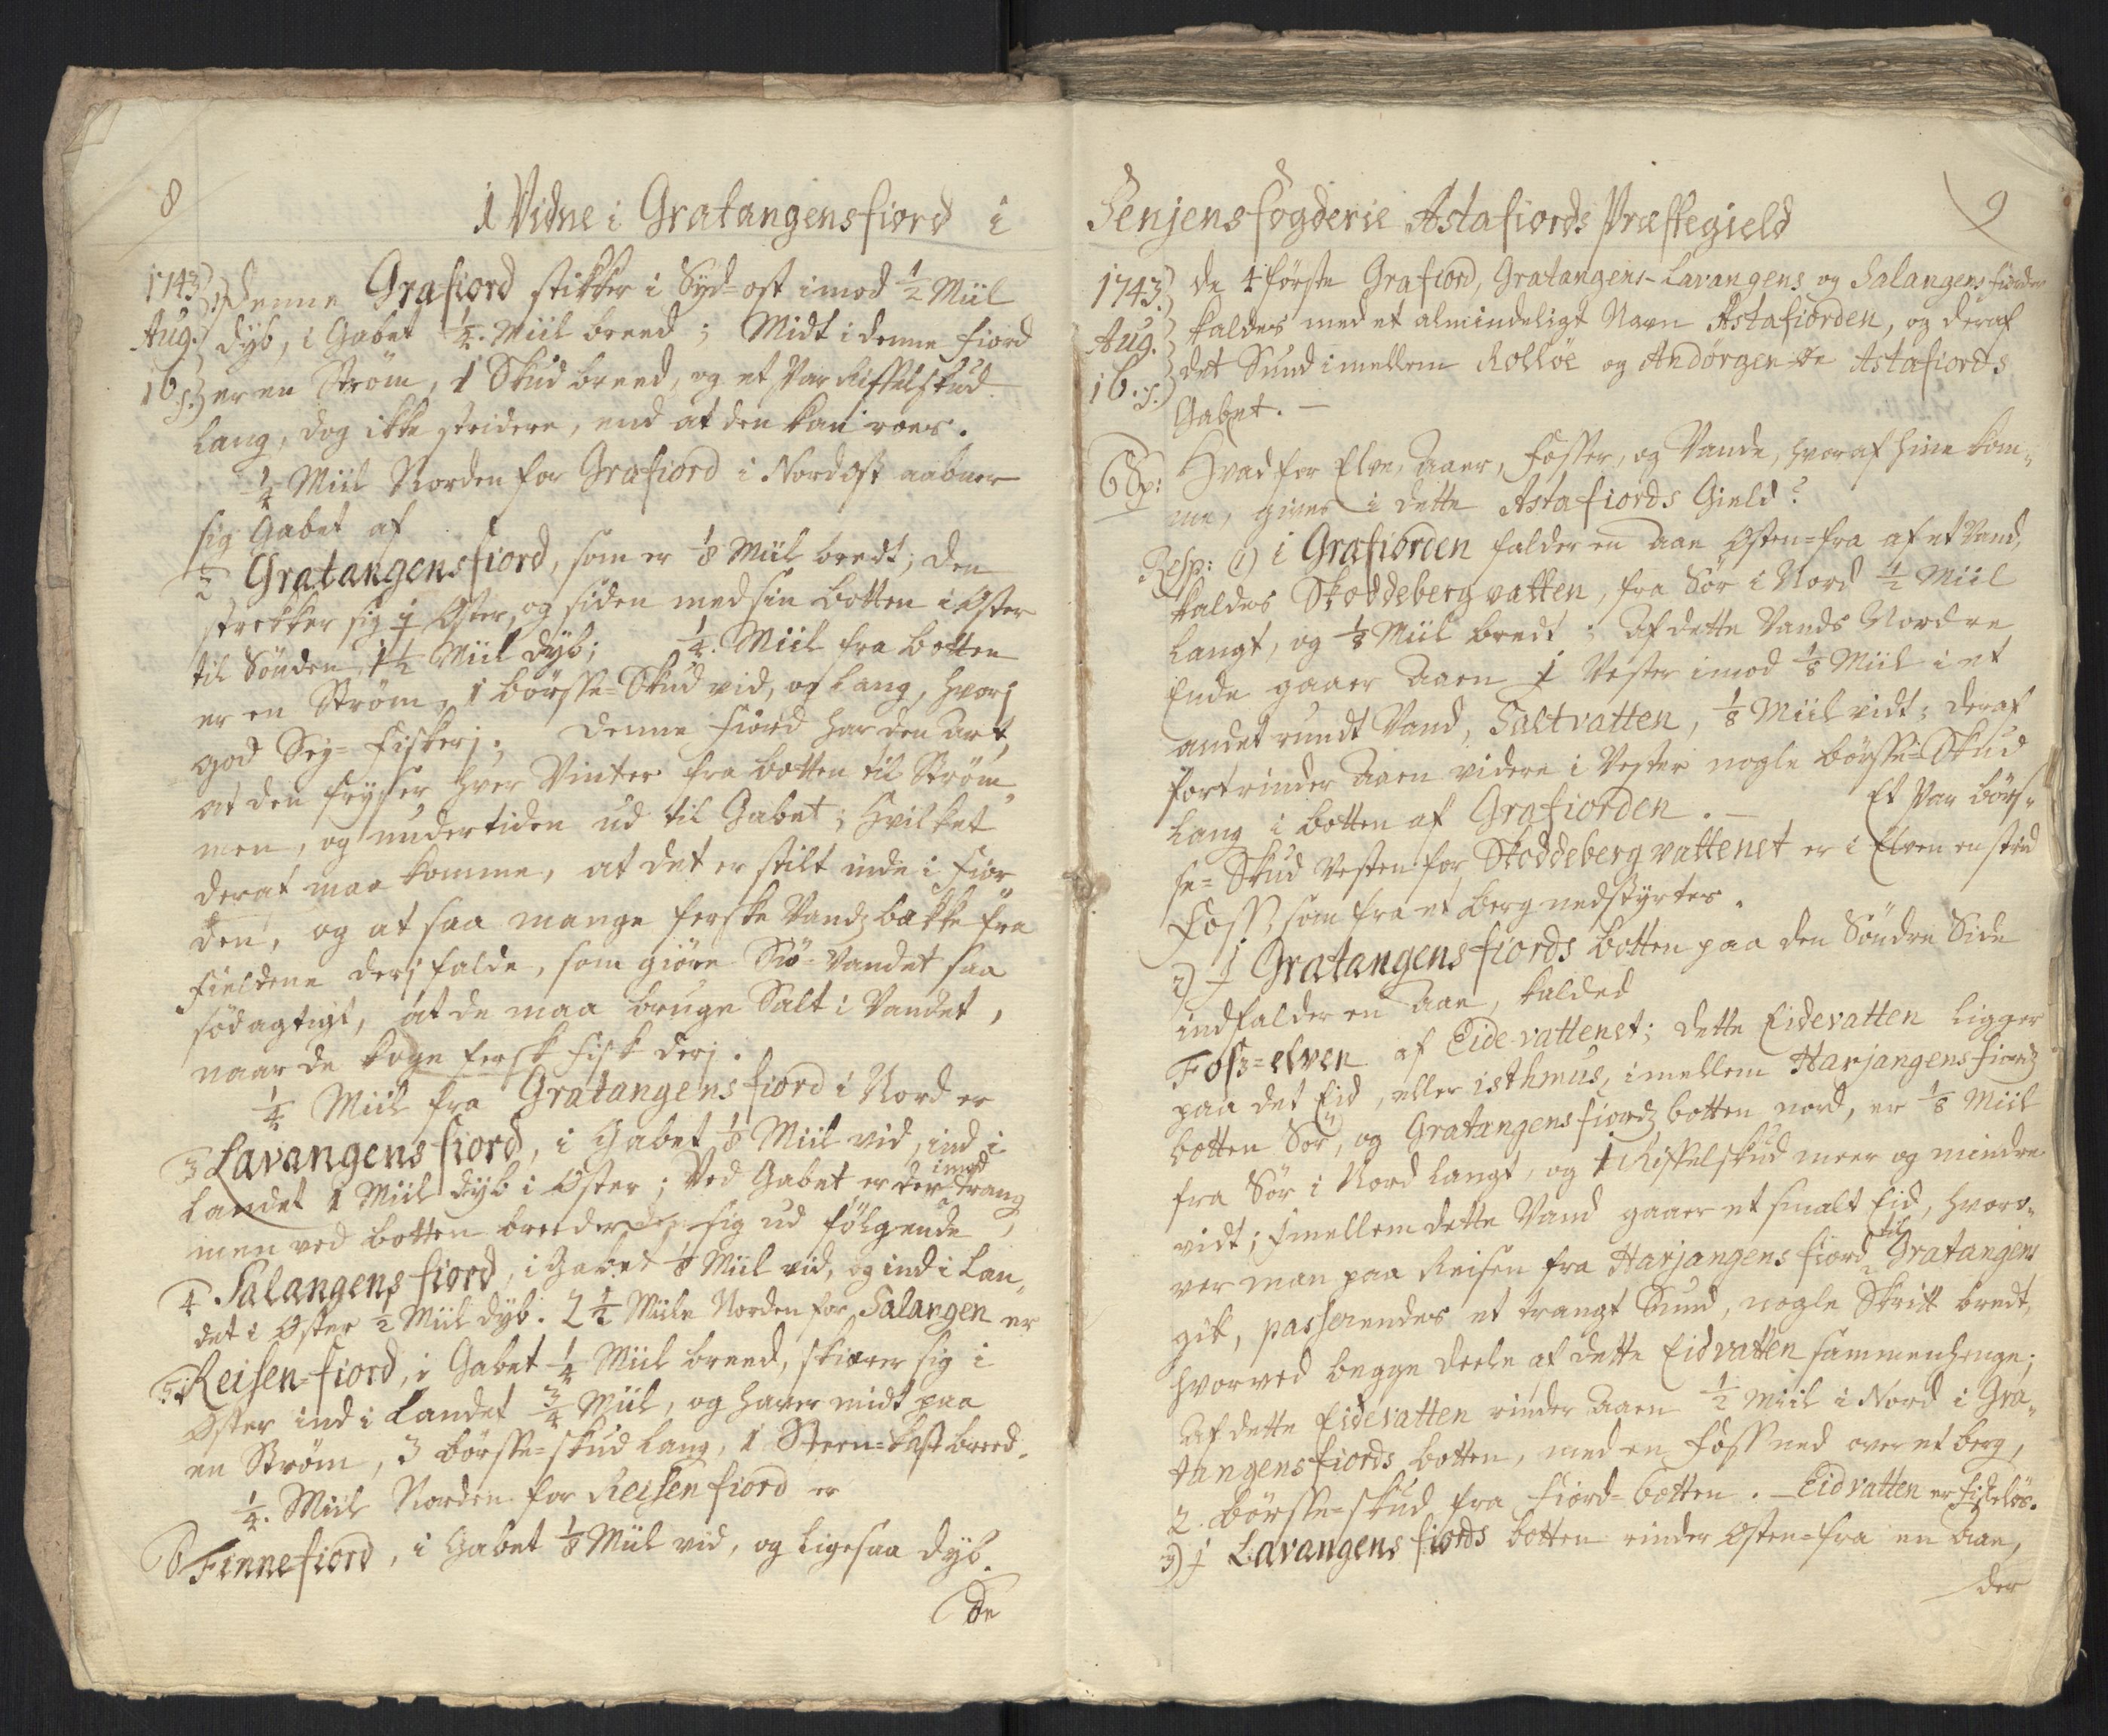 8
1 Vidne i Gratangens fiord i
1743 1) Denne Grafiord stikker i Syd-ost imod 1/2 Miil
Aug. dyb, i Gabet 1/4. Miil breed; Midt i denne fiord
16. s. er en Strøm, 1 Skud breed, og et Par Riffelskud
lang, dog ikke stridere, end at den kan roes.
1/4 Miil Norden for Grafiord i Nordost aabner
sig Gabet af
2 Gratangens fiord, som er 1/8 Miil bredt; den
strekker sig i Øster, og siden med sin botten i Øster
til Sønden 1 1/2 Miil dyb; 1/4. Miil fra botten
er en Strøm, 1 børsse-Skud vid, og lang, hvorj
god Sej-fiskerj. Denne fiord har den art,
at den fryser hver Vinter fra botten til Strøm-
men, og undertiden ud til Gabet; hvilket
deraf maa komme, at det er stilt inde i fior-
den, og at saa mange ferske Vandz bække fra
fieldene derj falde, som giøre Siø-Vandet saa
sødagtigt, at de maa bruge Salt i Vandet,
naar de koge fersk fisk derj.
1/4 Miil fra Gratangens fiord i Nord er
3 Lavangens fiord, i Gabet 1/8 Miil vid, ind i
Landet 1 Miil dyb i Øster; Ved Gabet er der imod trang
men ved botten breeder sig ud følgende
4 Salangens fiord, i Gabet 1/8 Miil vid, og ind i Lan-
det i Øster 1/2 Miil dyb. 2 1/2 Miile Norden for Salangen er
5. Reisen-fiord, i Gabet 1/4 Miil breed, skiærer sig i
Øster ind i Landet 3/4 Miil, og haver midt paa
en Strøm, 3 børsse-skud lang, 1 Steen-kast breed.
1/4. Miil Norden for Reisen fiord er
6 Finnefiord, i Gabet 1/8 Miil vid, og ligesaa dyb.
De
Senjens fogderie Astafiords Præstegield
9
1743. de 4 første Grafiord, Gratangens-Lavangens og Salangens fiorder
Aug. kaldes med et almindeligt Navn Astafiorden, og deraf
16. s. det Sund imellem Rolløe og Andørgen-De Astafiords
Gabet. —
6 Sp: Hvad for Elve, Aaer, Fosser, og Vande, hvoraf hine kom-
me, gives i dette Astafiords Gield?
Resp: 1) i Grafiorden falder en Aae Østen-fra af et Vand,
kaldes Skoddeberg vatten, fra Sør i Nord 1/2 Miil
langt, og 1/8 Miil bredt; Af dette Vands Nordre
Ende gaaer Aaen i Vester imod 1/8 Miil i et
andet rundt Vand, Saltvatten, 1/8 Miil vidt; deraf
fortrinder Aaen videre i Vester nogle børsse-Skud
lang i botten af Grafiorden. — Et Par børs-
se-Skud Vesten for Skoddeberg vattenet er i Elven en stind
Foss, som fra et berg nedstyrtes.
2) J Gratangens fiords botten paa den Søndre Side
indfalder en Aae, kalded
Foss-elven af Eide-vattenet; dette Eidevatten ligger
paa det Eid, eller isthmus, imellem Harjangens fiordz
botten Sør, og Gratangens fiordz botten nord, er 1/8 Miil
fra Sør i Nord langt, og 1 Riffelskud meer og mindre
vidt; Jmellem dette Vand gaaer et smalt Eid, hvoro-
ver man paa Reisen fra Harjangens fiord til Gratangens
gik, passerendes et trangt Sund, nogle Skritt bredt,
hvorved begge deele af dette Eidvatten sammenhenge;
Af dette Eidevatten rinder Aaen 1/2 Miil i Nord i Gra-
tangens fiords botten, med en Foss ned over et berg,
2. børsse-skud fra fiord-botten. — Eidvatten er fiskeløs.
3) J Lavangens fiords botten rinder Østen-fra en Aae,
der